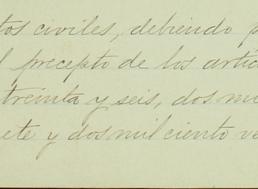 tos civiles, debiendo p
l precepto de los artíc
treinta y seis, dos mi
ete y dos mil ciento ve